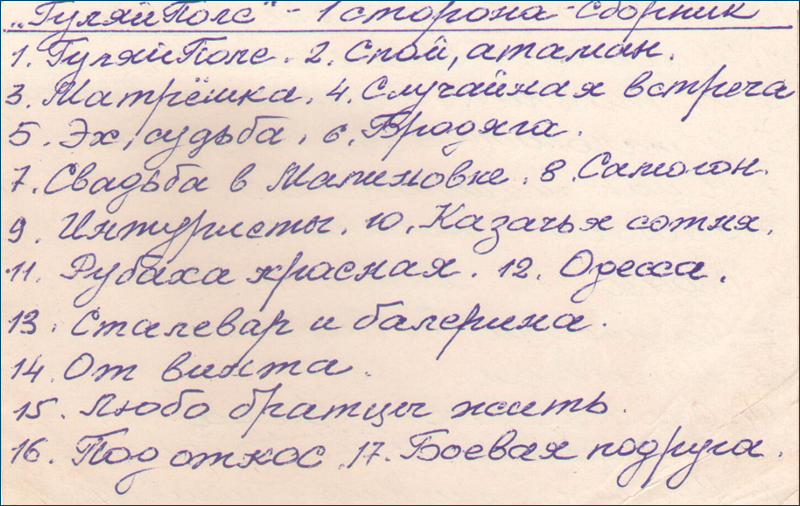 „ГуляйПоле" - 1 сторона - Сборник
1. ГуляйПоле. 2. Спой, атаман.
3. Матрёшка. 4. Случайная встреча
5. Эх, судьба. 6. Бродяга.
7. Свадьба в Малиновке. 8. Самогон.
9. Интуристы. 10. Казачья сотня.
11. Рубаха красная. 12. Одесса.
13. Сталевар и балерина.
14. От винта.
15. Любо братцы жить.
16. Под откос. 17. Боевая подруга.